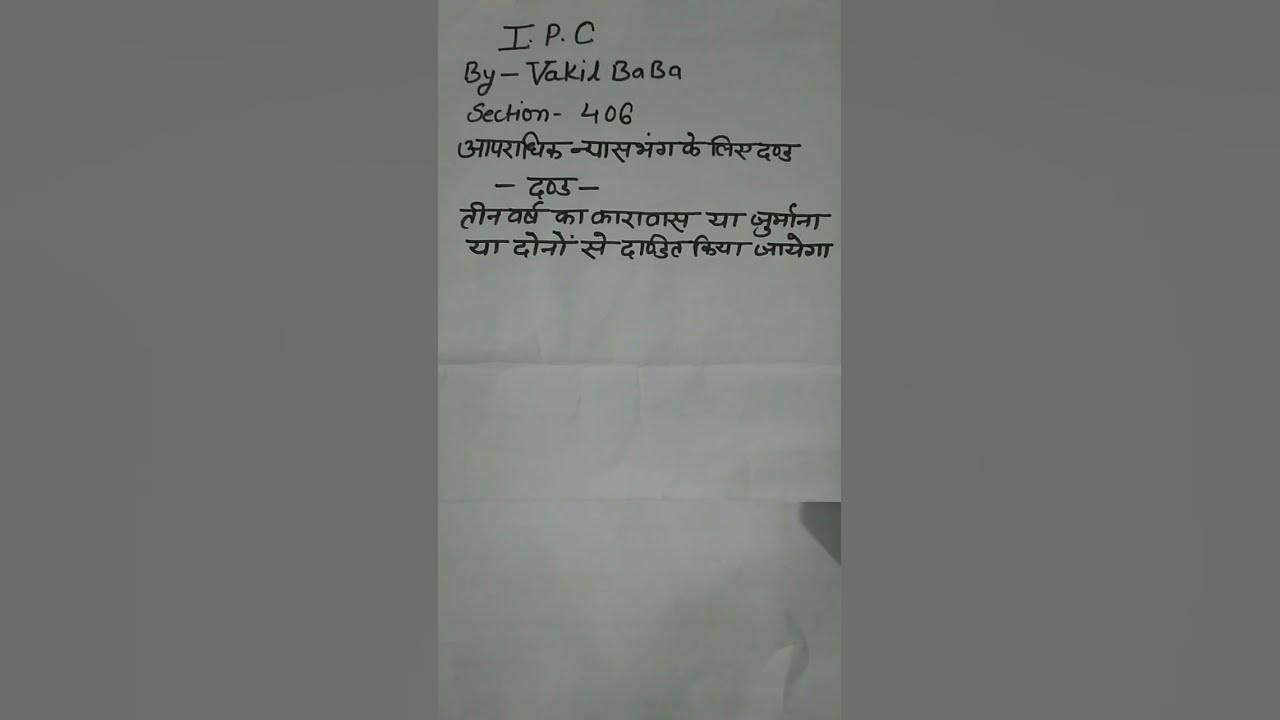 I.P.C
By- Vakil BaBa
Section- 406
आपराधिक न्यासभंग के लिए दण्ड
- दण्ड -
तीन वर्ष का कारावास या जुर्माना
या दोनों से दाण्डित किया जायेगा